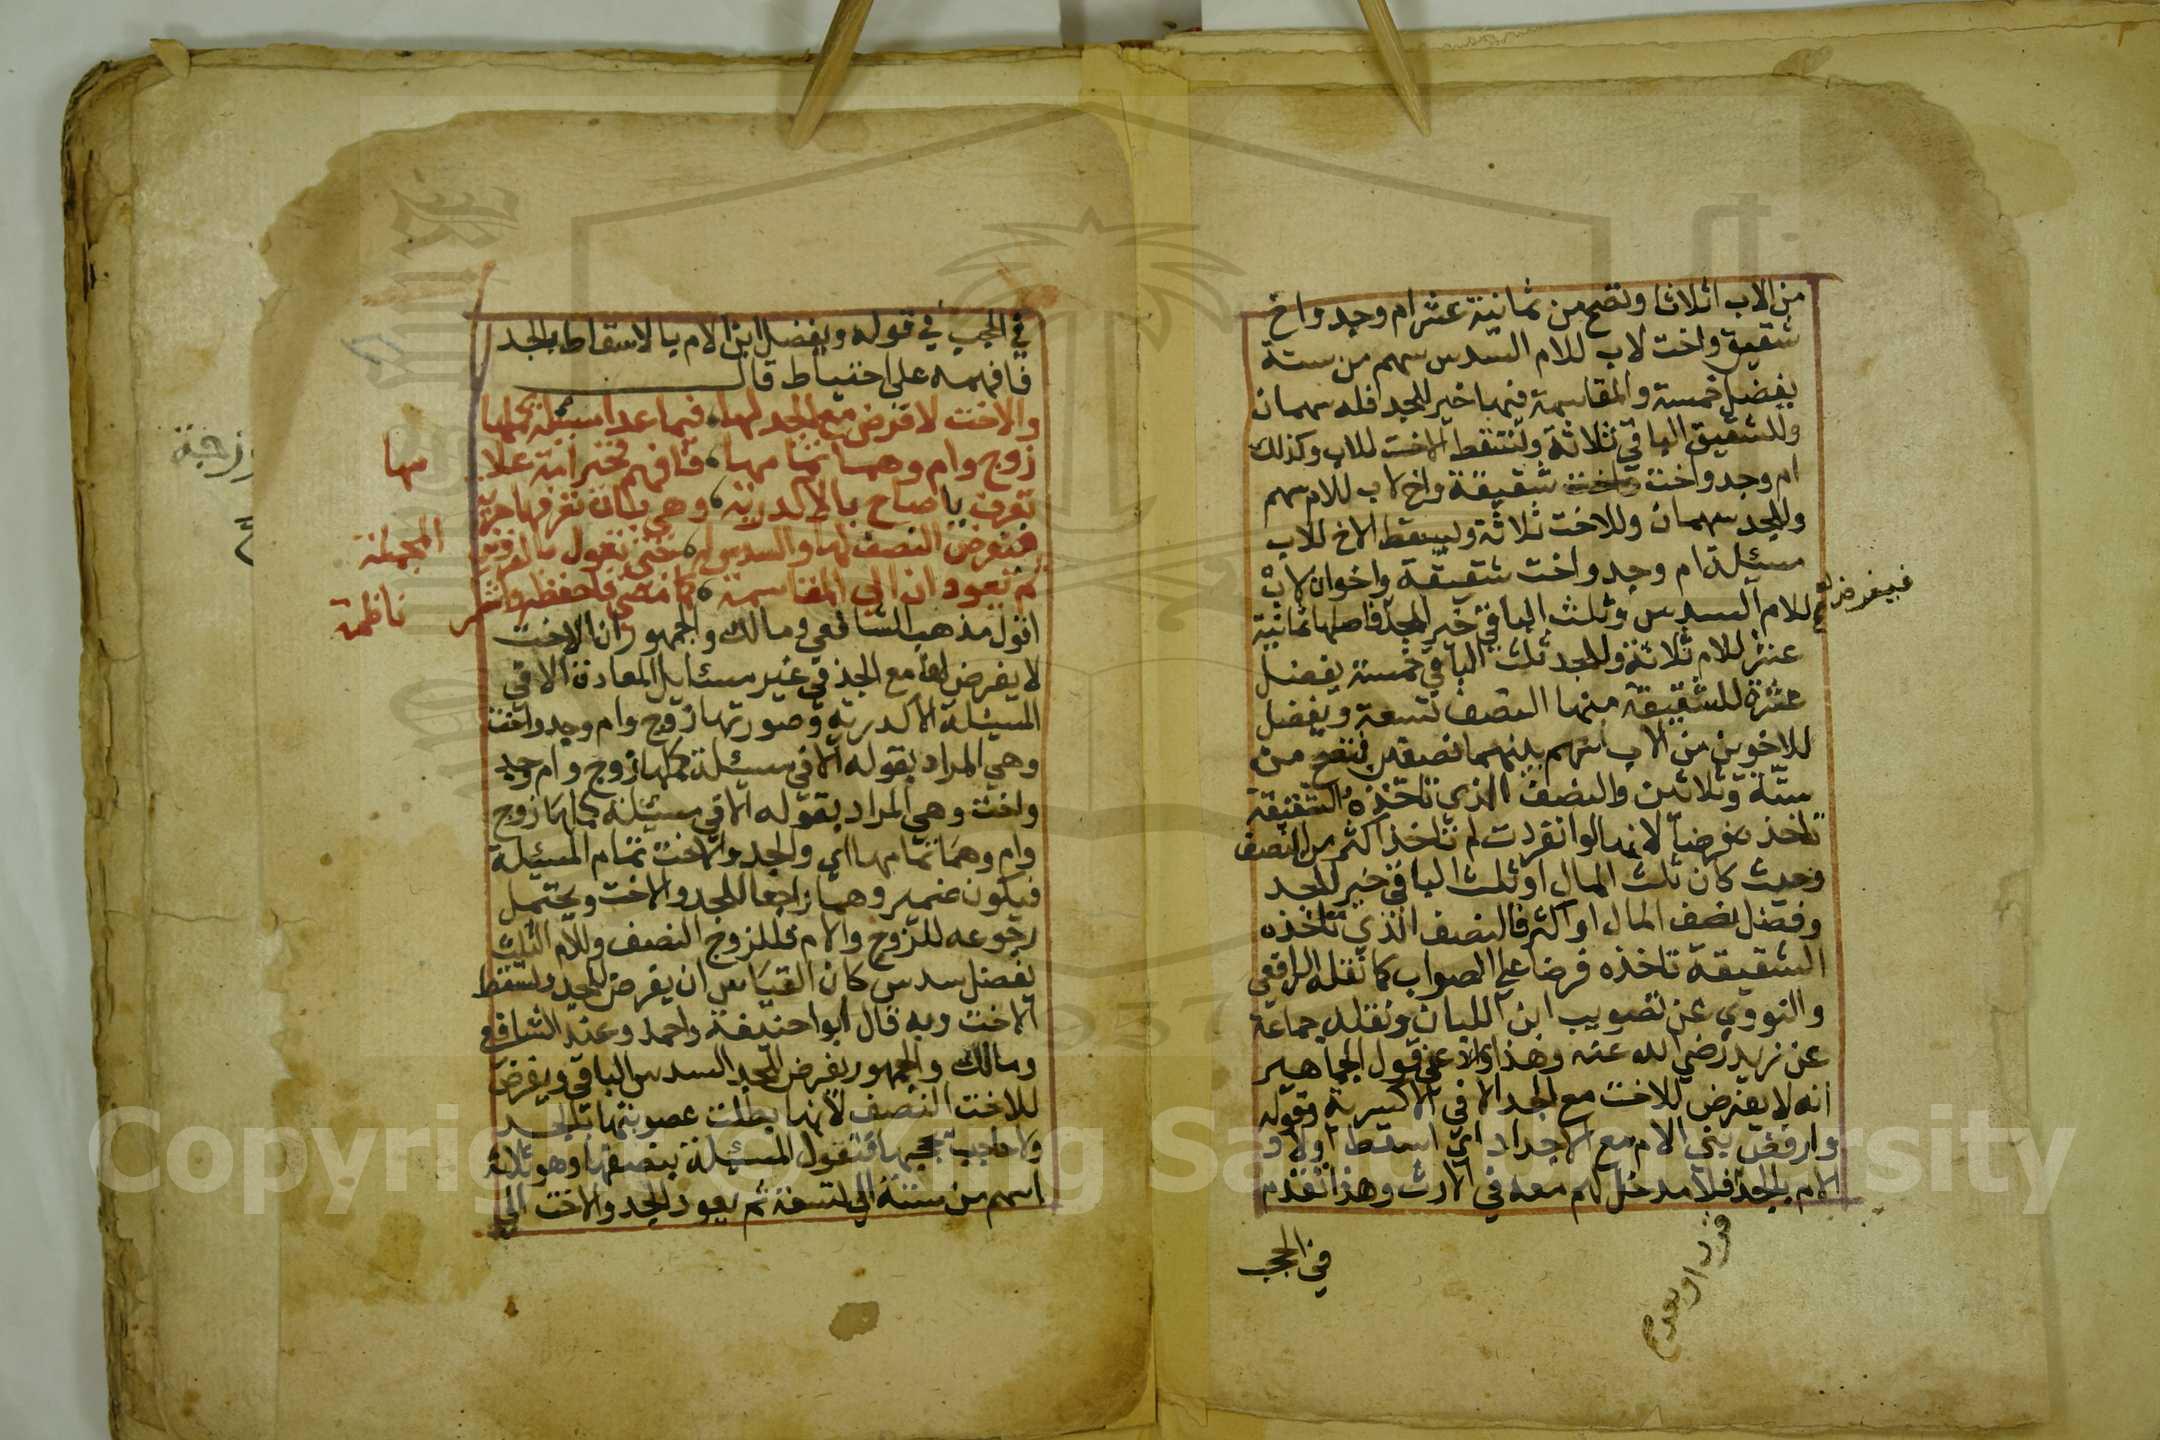 من الاب اثلاثا وتصح من ثمانية عشر ام وجد واخ
شقيق واخت لاب للام السدس سهم من ستة
يفضل خمسة والمقاسمة فيها خير للجد فله سهمان
وللشقيق الباقي ثلاثة وتسقط الاخت للاب وكذلك
ام وجد واخت شقيقة واخ لاب للام سهم
وللجد سهمان وللاخت ثلاثة ويسقط الاخ للاب
مسئلة ام وجد واخت شقيقة واخوان لاب
للام السدس وثلث الباقي خير للجد فاصلها ثمانية
فيفرض له
عشر للام ثلاثة وللجد ثلث الباقي خمسة يفضل
عشرة للشقيقة منها النصف تسعة ويفضل
للاخوين من الاب سهم بينهما نصفين فتصح من
ستة وثلاثين والنصف الذي تاخذه الشقيقة
تاخذه فرضا لانها لو انفردت لم تاخذ اكثر من النصف
وحيث كان ثلث المال او ثلث الباقي خير للجد
وفضل نصف المال او اكثر فالنصف الذي تاخذه
الشقيقة تاخذه فرضا على الصواب كما نقله الرافعي
والنووي عن تصويب ابن اللبان ونقله جماعة
عن زيد رضي الله عنه وهذا قول الجماهير
انه لا يفرض للاخت مع الجد الا في الاكدرية وقوله
وارفض بني الام مع الاجداد اي اسقط اولاد
الام بالجد فلا مدخل لهم معه في الارث وهذا تقدم
في الحجب
في الحجب في قوله ويفضل ابن الام بالاسقاط بالجد
فافهمه على احتياط قال
والاخت لا فرض مع الجد لها، فيما عدا مسئلة كملها
زوج وام وهما تمامها، فافهم فخير امة علامها
تعرف يا صاح بالاكدرية، وهي بان تعرفها حرية
فتفرض النصف لها والسدس له، حتى تعول بالفروض المجملة
ثم تعودان الى المقاسمة، كما مضى فاحفظه واشكر ناظمه
اقول مذهب الشافعي ومالك والجمهور ان الاخت
لا يفرض لها مع الجد في غير مسايل المعادة الا في
المسئلة الاكدرية وصورتها زوج وام وجد واخت
وهي المراد بقوله الا في مسئلة كملها زوج وام وجد
واخت وهي المراد بقوله الا في مسئلة كملها زوج
وام وهما تمامها اي والجد والاخت تمام المسئلة
فيكون ضمير وهما راجعا للجد والاخت ويحتمل
رجوعه للزوج والام فللزوج النصف وللام الثلث
يفضل سدس كان القياس ان يفرض للجد وتسقط
الاخت وبه قال ابوا حنيفة واحمد وعند الشافعي
ومالك والجمهور يفرض للجد السدس الباقي ويفرض
للاخت النصف لانها بطلت عصوبتها بالجد
ولا حاجب يحجبها فتعول المسئلة بنصفها وهو ثلاثة
اسهم من ستة الى تسعة ثم يعود الجد والاخت الى